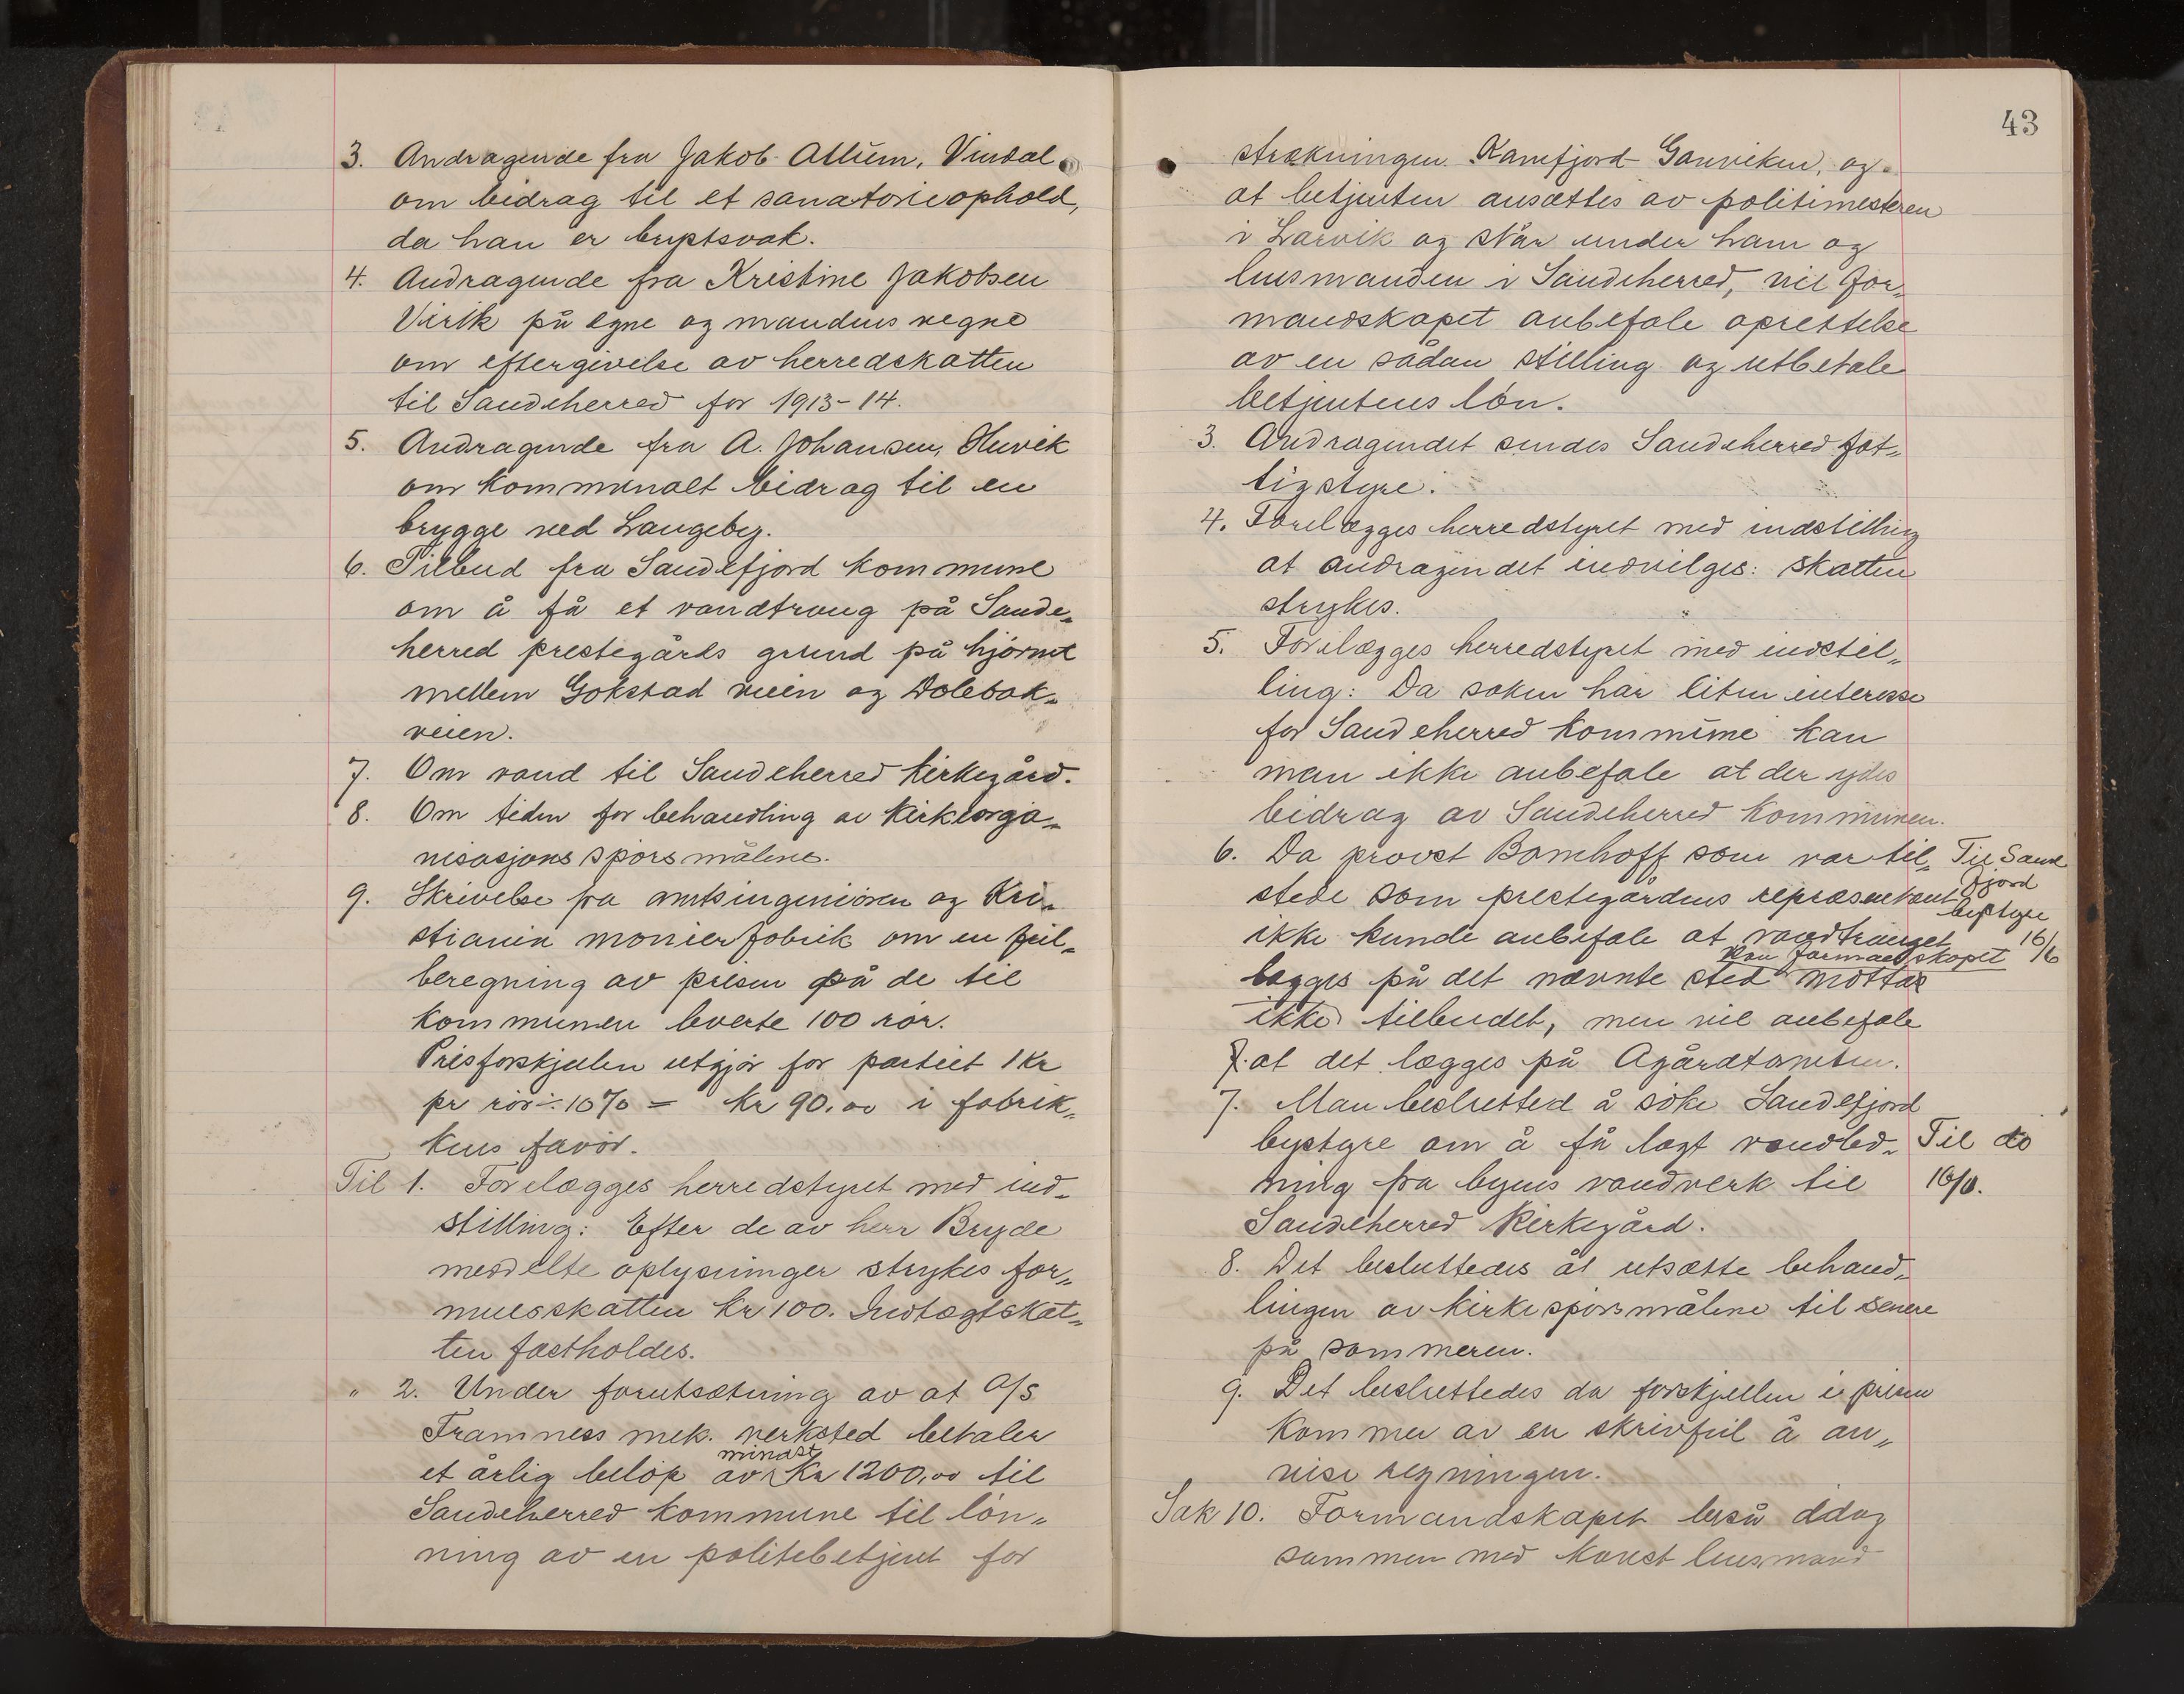 3. Andragende fra Jakob Allum, Vindal
om bidrag til et sanatorieophold,
da han er brystsvak.
4. Andragende fra Kristine Jakobsen
Virik på egne og mandens vegne
om eftergivelse av herredskatten
til Sandeherred for 1913-14.
5. Andragende fra A. Johansen, Huvik
om kommunalt bidrag til en
brygge ved Langeby.
6. Tilbud fra Sandefjord kommune
om å få et vandtraug på Sande„
herred prestegårds grund på hjørnet
mellem Gokstad veien og Dølebak„
veien.
7. Om vand til Sandeherred kirkegård.
8. Om tiden for behandling av kirkeorga„
nisasjonsspørsmålene.
9. Skrivelse fra amtsingeniøren og Kri„
stiania monierfabrik om en feil„
beregning av prisen på de til
kommunen leverte 100 rør.
Prisforskjellen utgjør for partiet 1 kr
pr rør ÷ 10% = kr 90.00 i fabrik„
kens favør.
Til 1. Forelægges herredstyret med ind„
stilling: Efter de av herr Bryde
meddelte oplysninger strykes for„
muesskatten kr 100. Indtægtskat„
ten fastholdes.
" 2. Under forutsætning av at A/S
Framness mek. verksted betaler
et årlig beløp av mindst kr 1200,00 til
Sandeherred kommune til løn„
ning av en politibetjent for
43
strækningen Kamfjord-Gonviken, og
at betjenten ansættes av politimesteren
i Larvik og står under ham og
lensmanden i Sandeherred, vil for„
mandskapet anbefale oprettelse
av en sådan stilling og utbetale
betjentens løn.
3. Andragendet sendes Sandeherred fat„
tigstyre.
4. Forelægges herredstyret med indstilling
at andragendet indvilges: skatten
strykes.
5. Forelægges herredstyret med indstil„
ling: Da saken har liten interesse
for Sandeherred kommune kan
man ikke anbefale at der ydes
bidrag av Sandeherred kommunen.
6. Da provst Bomhoff som var til„
stede som prestegårdens repræsentant
ikke kunde anbefale at vandtrauget
lægges på det nævnte sted kan formandskapet motta
ikke tilbudet, men vil anbefale
at det lægges på Agårdtomten.
Til Sande
fjord
bystyre
16/6
7. Man besluttet å søke Sandefjord
bystyre om å få lagt vandled„
ning fra byens vandverk til
Sandeherred kirkegård.
Til do
16/6.
8. Det besluttedes å utsætte behand„
lingen av kirkespørsmålene til senere
på sommeren.
9. Det besluttedes da forskjellen i prisen
kommer av en skrivfeil å an„
vise regningen.
Sak 10. Formandskapet beså idag
sammen med konst lensmand